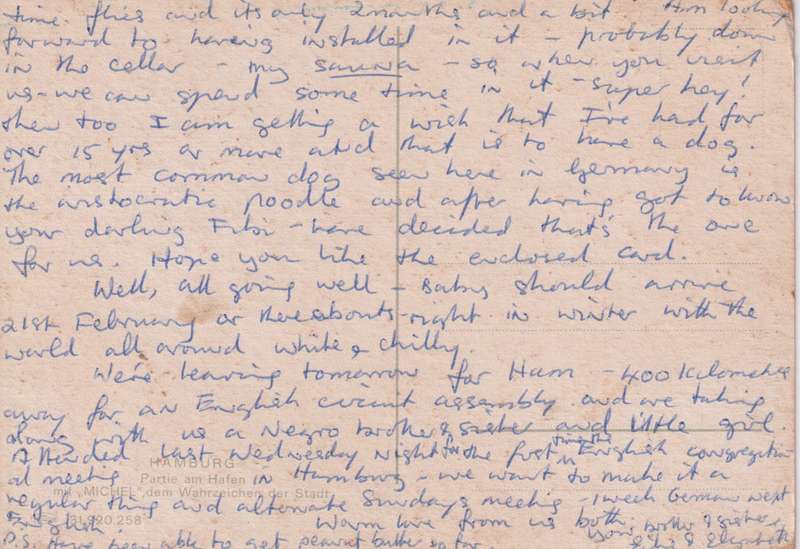 time flies and its only 2 months and a bit Am looking
forward to having installed in it - probably down
in the cellar - my sauna - so when you visit
us - we can spend some time in it - super hey!
then too I am getting a wish that I've had for
over 15 yrs or more and that is to have a dog.
The most common dog seen here in Germany is
the aristocratic poodle and after having got to know
your darling Fibi - have decided that's the one
for us. Hope you like the enclosed card.
Well, all going well - Baby should arrive
21st February or thereabouts - right in winter with the
world all around white & chilly.
We're leaving tomorrow for Ham - 400 kilometres
away for an English circuit assembly and are taking
along with us a Negro brother & sister and little girl.
Attended last Wednesday Night for the first English congregation
al meeting in Hamburg - we want to make it a
HAMBURG
Partie am Hafen
mit „MICHEL", dem Wahrzeichen der Stadt
regular thing and alternate Sundays meeting - 1 week German next
English. Warm love from us both,
920 258
your brother & sister
& Elizabeth
P.S. Have been able to get peanut butter so far.